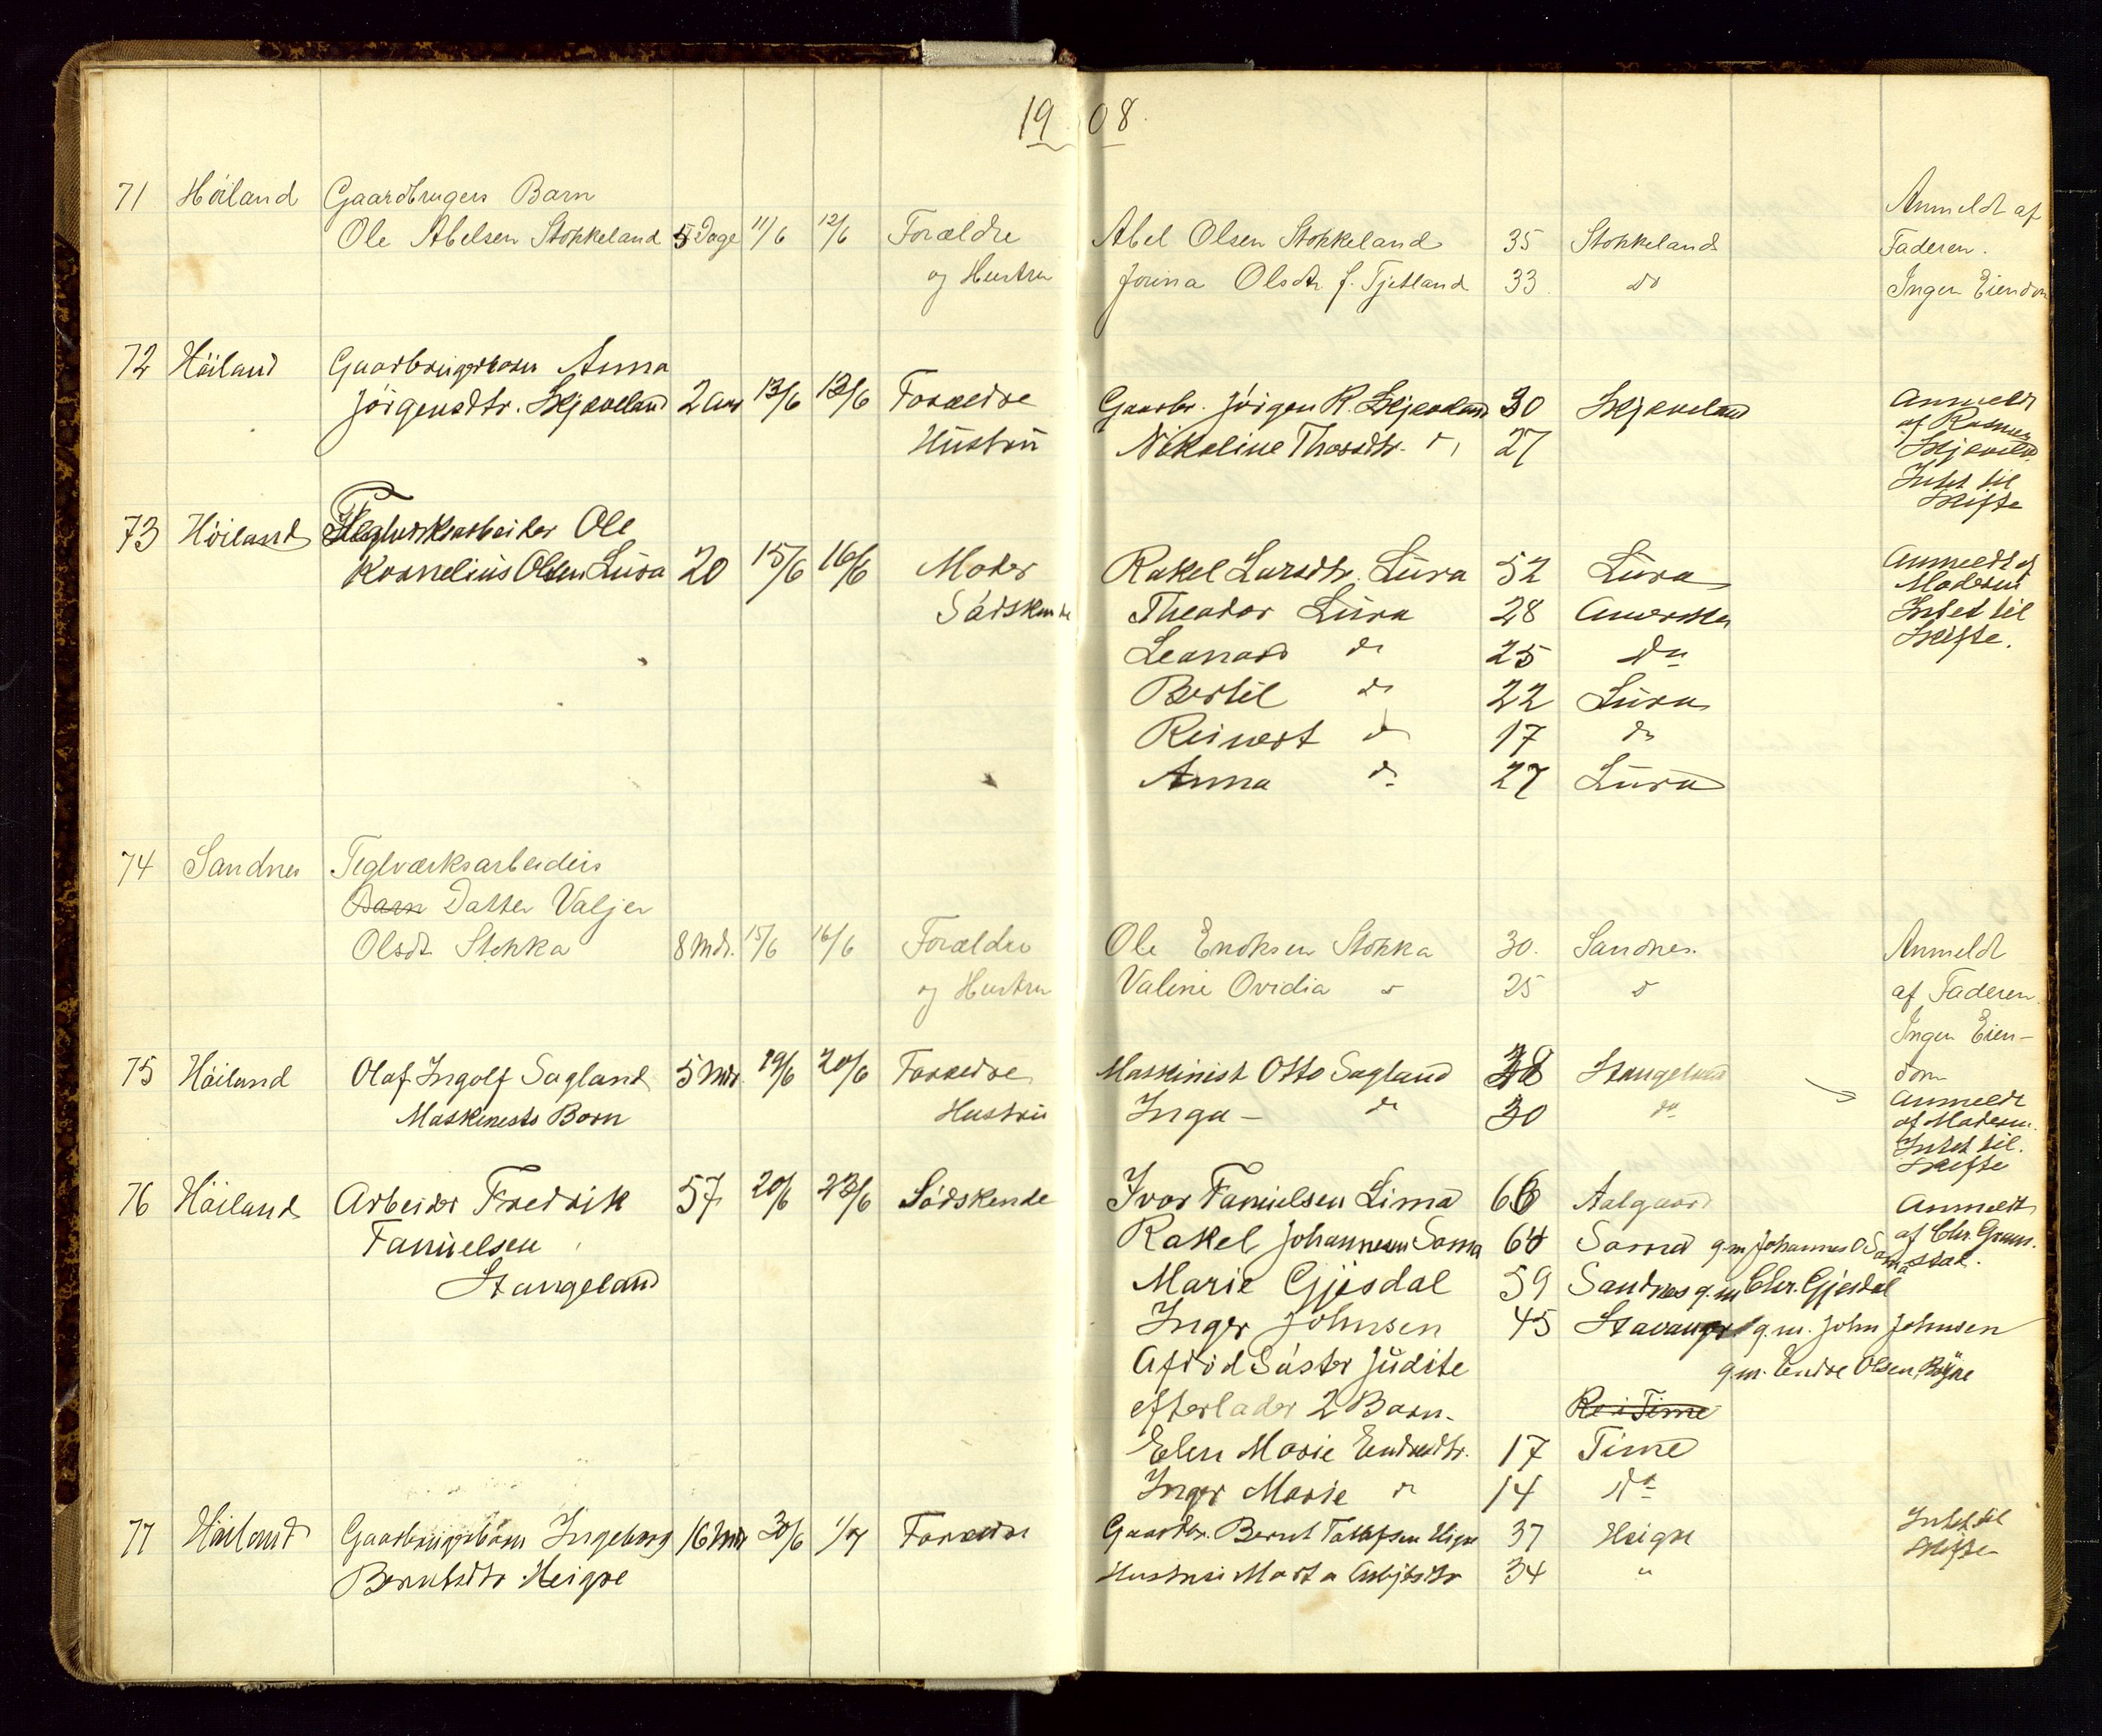 1908.
71 Höiland Gaardbrugers Barn
Ole Abelsen Stokkeland 5 Dage 11/6 12/6 Forældre Abel Olsen Stokkeland 35 Stokkeland Anmeldt af
Faderen.
og Hustru Jorina Olsdtr. f. Tjetland 33 do Ingen Eiendom
72 Höiland Gaardbrugerbarn Anna
Jörgensdtr. Skjæveland 2 Aar 13/6 13/6 Forældre Gaardbr. Jörgen R. Skjæveland 30 Skjæveland Anmeldt
af Rasmus
Hustru Nikoline Thorsdtr. do 27 Skjæveland
Intet til
Skifte
73 Höiland Teglverksarbeider Ole
Kornelius Olsen Lura 20 15/6 16/6 Moder Rakel Larsdtr. Lura 52 Lura Anmeldt af
Moderen
Södskende Theodor Lura 28 Amerika Intet til
Skifte.
Leonard do 25 do
Bertil do 22 Lura
Reinert do 17 do
Anna do 27 Lura
74 Sandnes Teglværksarbeiders
Barn Datter Valjer
Olsdt. Stokka 8 Mdr. 15/6 16/6 Forældre Ole Enoksen Stokka 30. Sandnes. Anmeldt
og Hustru Valine Ovidia do 25 do af Faderen.
Ingen Eien-
dom
75 Höiland Olaf Ingolf Sagland 5 Mdr. 19/6 20/6 Forældre Maskinist Otto Sagland 38 Stangeland Anmeldt
Maskinests Barn Hustru Inga - do 30 do af Moderen.
Intet til.
Skifte
76 Höiland Arbeider Fredrik 57 20/6 23/6 Södskende Ivar Tanuelsen Lima 66 Aalgaard Anmeldt
Fanuelsen Rakel Johannesen Soma 64 Soma g.m. Johannes O Soma af Chr. Grams-
stad.
Stangeland Marie Gjesdal 59 Sandnes g.m Chr. Gjesdal
Inger Johnsen 45 Stavanger g.m. John Johnsen
Afdöd Söster Judite g.m. Endre Olsen
efterlader 2 Barn. Re i Time
Elen Marie Endresdtr. 17 Time
Inger Marie do 14 do
77 Höiland Gaardbrugerbarn Ingeborg 16 Mdr 30/6 1/7 Forældre Gaardbr. Bernt Tollefsen Heigre 37 Heigre Intet til
Skifte
Berntsdtr Heigre Hustru Marta 34 "